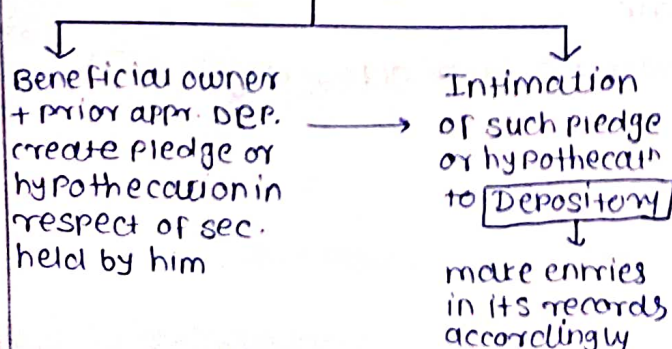 Beneficial owner
+ prior appr. DEP.
create pledge or
hypothecation in
respect of sec.
held by him
Intimation
of such pledge
or hypothecatn
to Depository
make entries
in its records
accordingly